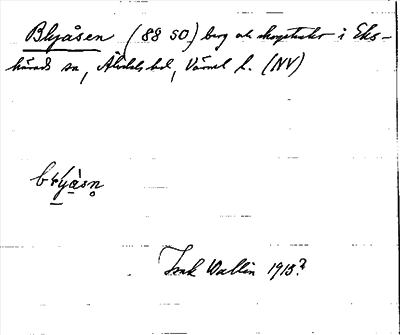 Blyåsen (88 SO) berg och skogstrakt i Eks-
härads sn, Älvdals hd, Värml l. (NV)
blyåsn
Wallin 1913?